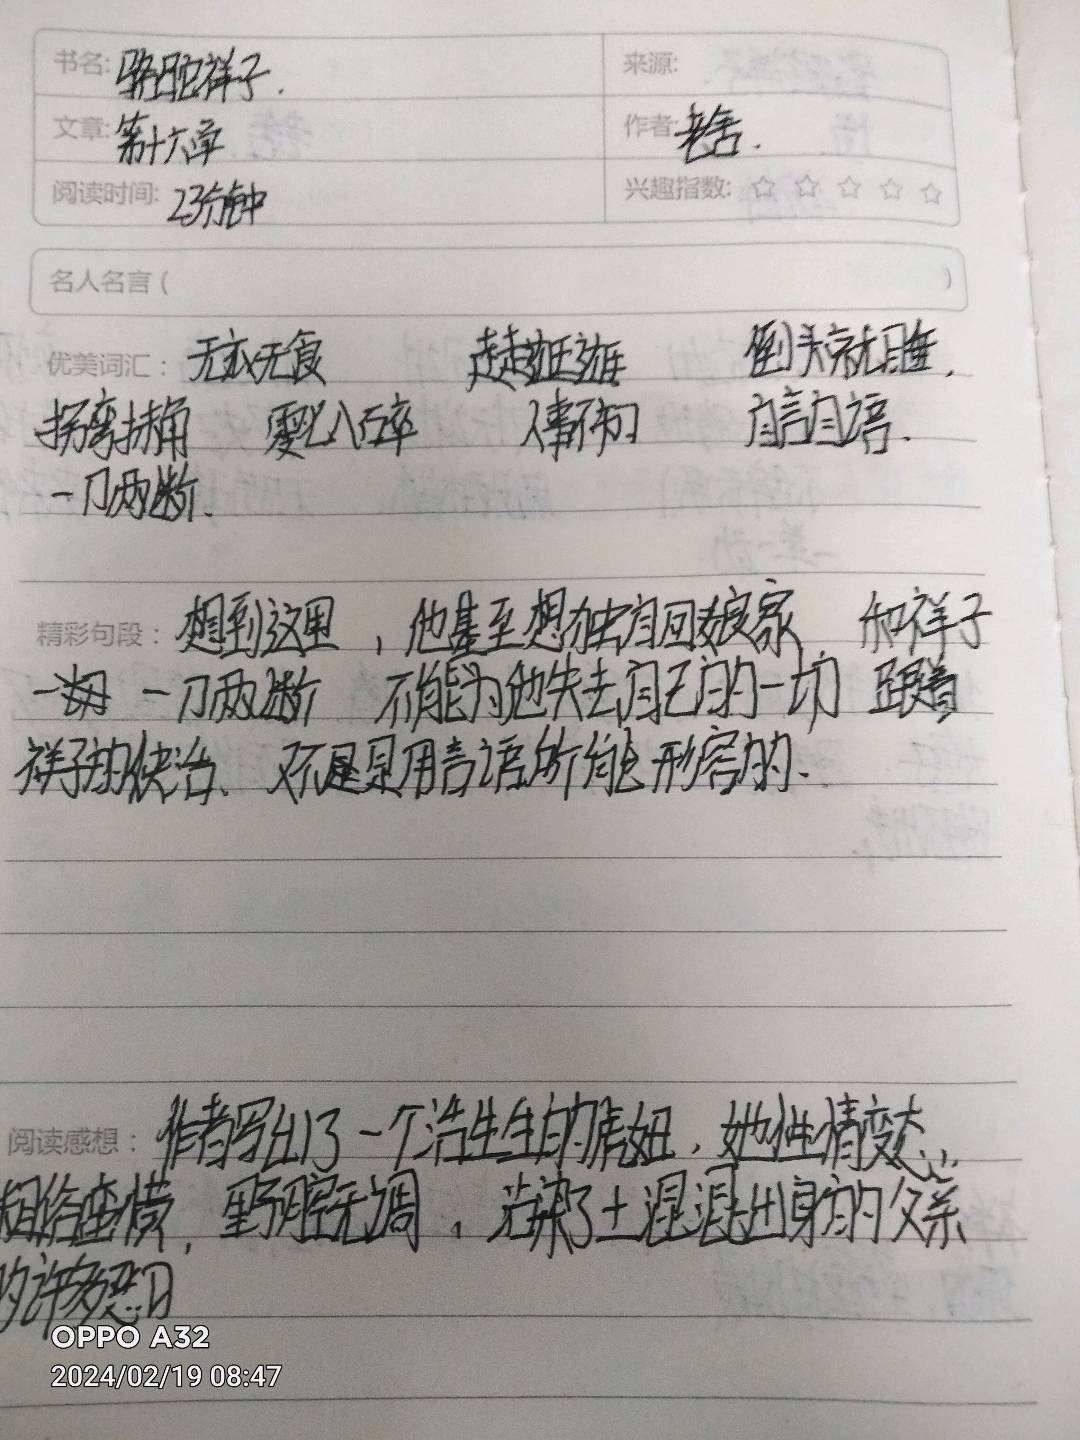 书名: 骆驼祥子. 来源:
文章: 第十六章 作者: 老舍.
阅读时间: 23分钟 兴趣指数: ☆ ☆ ☆ ☆ ☆
名人名言 ( )
优美词汇: 无衣无食 倒头就睡.
拐弯抹角 零七八碎 人事不知 自言自语.
一刀两断.
精彩句段: 想到这里, 他甚至想独自回娘家 和祥子
一刀两断 不能为他失去自己的一切 跟着
祥子的快活、又不是用言语所能形容的.
阅读感想: 作者写出了一个活生生的虎妞, 她性情变态
野腔无调, 沾染了土混混出身的父亲
的许多恶习
OPPO A32
2024/02/19 08:47